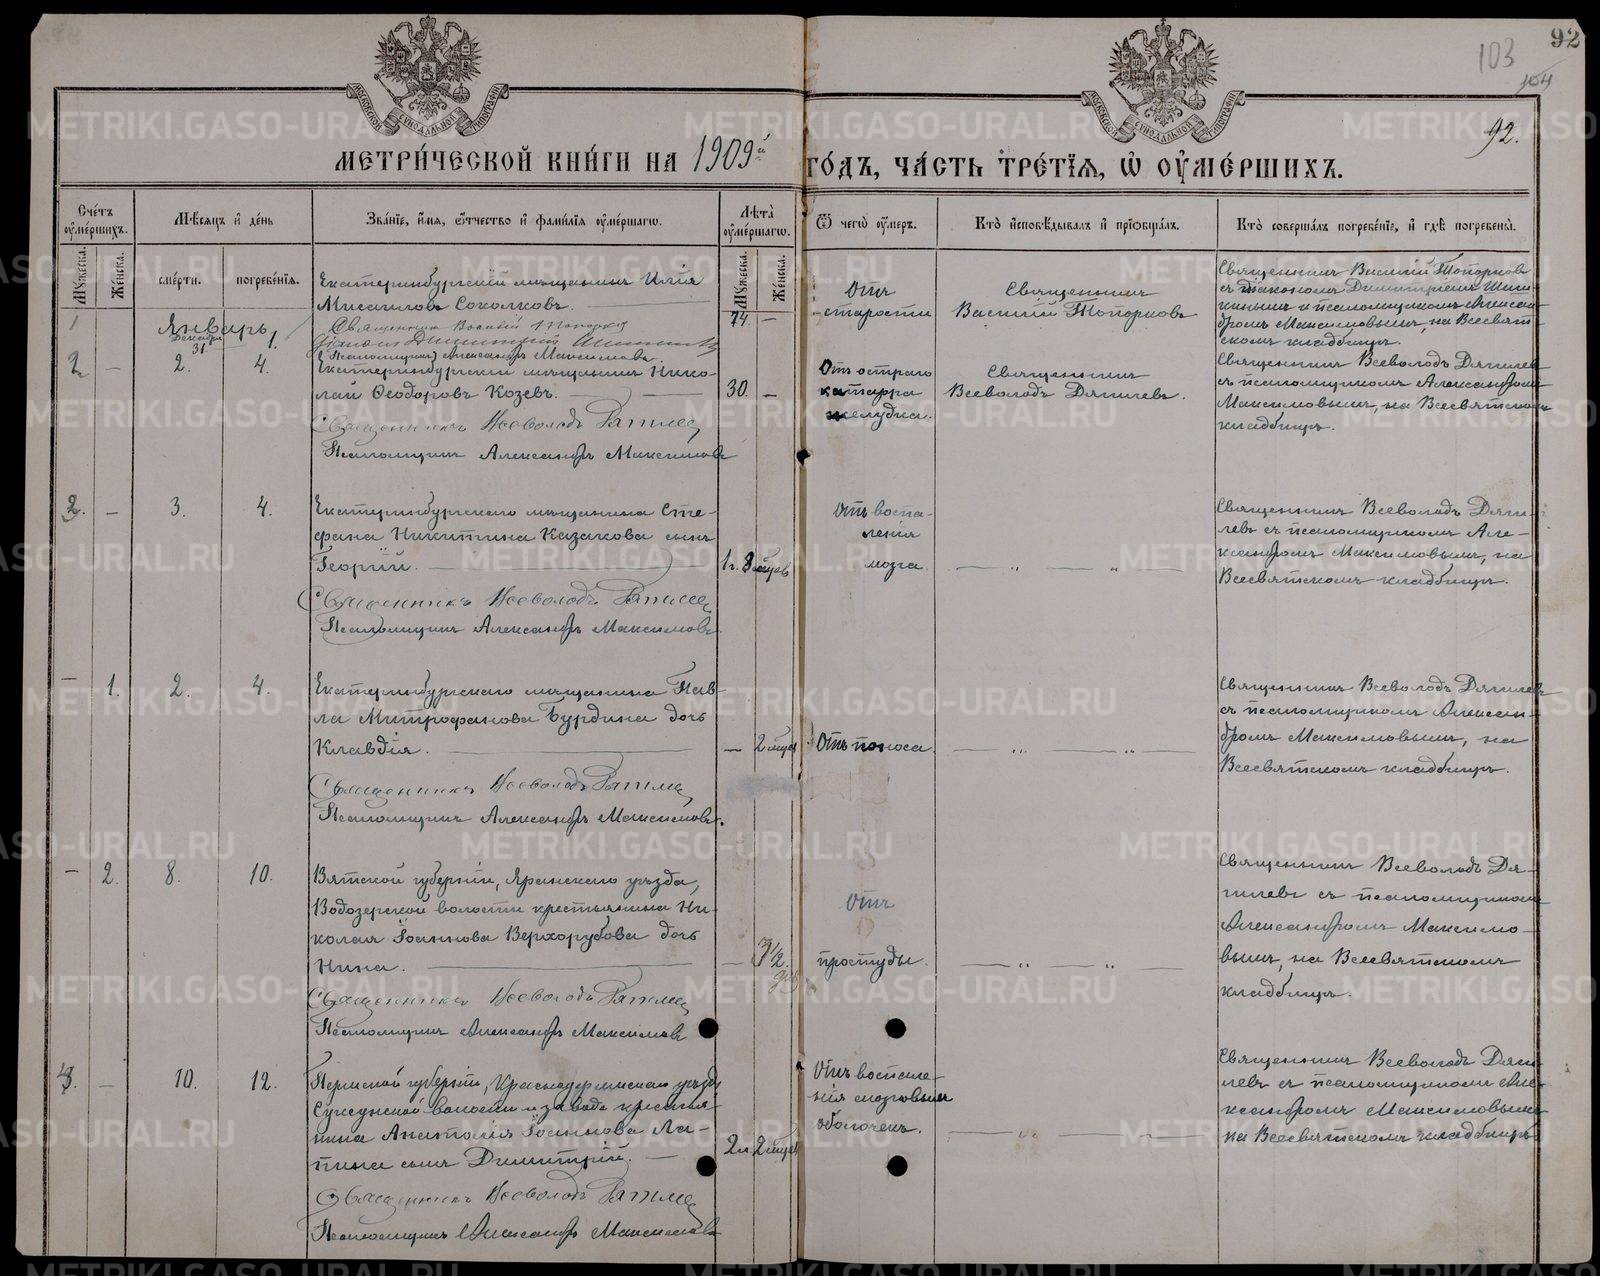 92
103
104
92.
МОСКОВСКОЙ СѴНОДАЛЬНОЙ ТИПОГРАФІИ
МОСКОВСКОЙ СѴНОДАЛЬНОЙ ТИПОГРАФІИ
МЕТРИ́ЧЕСКОЙ КНИ́ГИ НА 1909й ГО́ДЪ, ЧА́СТЬ ТРЕ́ТІѦ, Ѡ ОУ҆МЕ́РШИХЪ.
Сче́тъ оу҆ме́ршихъ.
Мꙋ́жеска.
Же́нска.
Мѣ́сяцъ и҆ де́нь
сме́рти.
погребе́нія.
Зва́ніе, и҆́мя, ѻ҆́тчество и҆ фами́лія оу҆ме́ршагѡ.
Лѣ́та оу҆ме́ршагѡ.
Мꙋ́жеска.
Же́нска.
Ѿ чегѡ̀ оу҆́меръ.
Кто̀ и҆сповѣ́дывалъ и҆ прїѡбща́лъ.
Кто̀ соверша́лъ погребе́ніе, и҆ гдѣ̀ погребены̀.
1
Январь
Декабря
31.
1.
Екатеринбургскій мѣщанинъ Илія
Соколковъ.
Священникъ Василій Топорков
Псаломщикъ Александръ Максимовъ.
74.
—
Отъ
старости
Священникъ
Василій Топорковъ
Священникъ Василій Топорковъ
съ діакономъ Димитріемъ
и псаломщикомъ Алексан-
дромъ Максимовымъ, на Всесвят-
скомъ кладбищѣ.
2
—
2.
4.
Екатеринбургскій мѣщанинъ Нико-
лай Ѳеодоровъ Козевъ.
Священникъ Всеволодъ
Псаломщикъ Александръ Максимовъ
30.
—
Отъ остраго
катарра
желудка.
Священникъ
Всеволодъ Дягилевъ.
Священникъ Всеволодъ Дягилевъ
съ псаломщикомъ Александромъ
Максимовымъ, на Всесвятскомъ
кладбищѣ.
3.
—
3.
4.
Екатеринбургскаго мѣщанина Сте-
фана Никитина Казакова сынъ
Георгій.
Священникъ Всеволодъ
Псаломщикъ Александръ Максимовъ
1 г. 8 мцевъ
Отъ воспа-
ленія
мозга.
Священникъ Всеволодъ Дяги-
левъ съ псаломщикомъ Але-
ксандромъ Максимовымъ, на
Всесвятскомъ кладбищѣ.
—
1.
2.
4.
Екатеринбургскаго мѣщанина Пав-
ла Митрофанова Бурдина дочь
Клавдія.
Священникъ Всеволодъ
Псаломщикъ Александръ Максимовъ.
— 2 мцев
Отъ поноса
Священникъ Всеволодъ Дягилевъ
съ псаломщикомъ Алексан-
дромъ Максимовымъ, на
Всесвятскомъ кладбищѣ.
—
2.
8.
10.
Вятской губерніи, Яранскаго уѣзда,
Водозерской волости крестьянина Ни-
колая Іоаннова Верхорубова дочь
Нина.
Священникъ Всеволодъ
Псаломщикъ Александръ Максимовъ
— 3½
Отъ
простуды.
Священникъ Всеволодъ Дя-
гилевъ съ псаломщикомъ
Александромъ Максимо-
вымъ, на Всесвятскомъ
кладбищѣ.
—
10.
12.
Пермской губерніи, Красноуфимскаго уѣзда
Суксунской волости и завода крестья-
нина Анатолія Іоаннова Ла-
пина сынъ Димитрій.
Священникъ Всеволодъ
Псаломщикъ Александръ Максимовъ
2 л. 2 мцев
Отъ воспале-
нія мозговыхъ
оболочекъ.
Священникъ Всеволодъ Дяги-
левъ съ псаломщикомъ Але-
ксандромъ Максимовымъ
на Всесвятскомъ кладбищѣ
METRIKI.GASO-URAL.RU